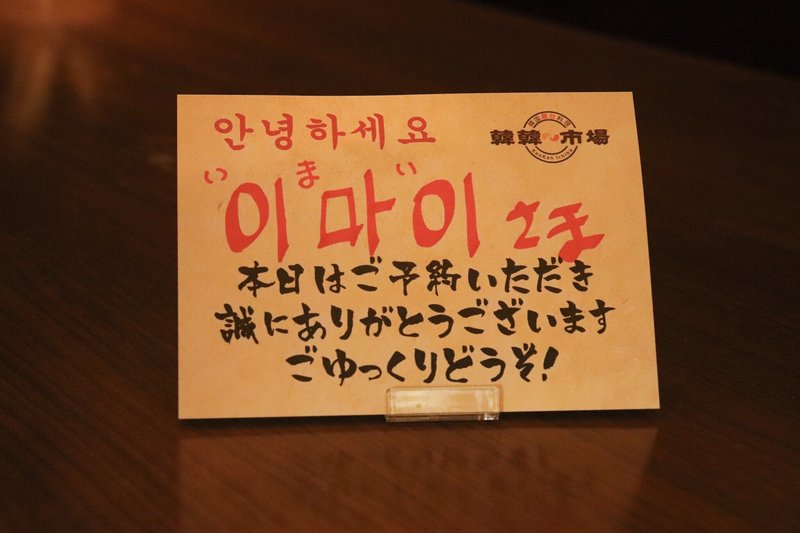 안녕하세요
韓国屋台料理
韓韓 市場
KanKan Ichiba
い ま い
이마이 さま
本日はご予約いただき
誠にありがとうございます
ごゆっくりどうぞ!